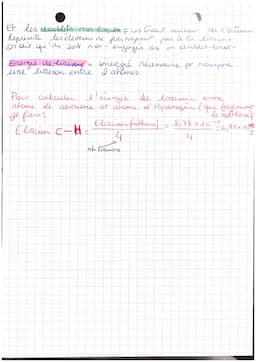 Et les doublets non liants = ils sont autour de l'atome.
Représente les électrons ne participant pas à la liaison.
On dit qu'ils sont non-engagés ds un doublet liant.
Energie de liaison = énergie nécessaire pr rompre
une liaison entre 2 atomes.
Pour calculer l'énergie de liaison entre
atome de carbone et atome d'Hydrogène (qui forment
le méthane)
je fais :
E liaison C-H = E liaison (méthane) / 4 = 2,73 × 10 / 4 = 6,83 ×
nb liaisons